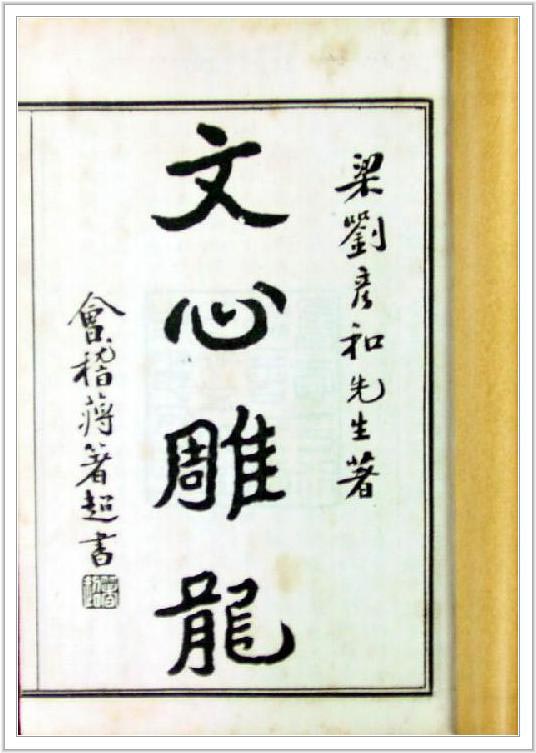 梁劉彦和先生著
文心雕龍
會稽蔣著超書